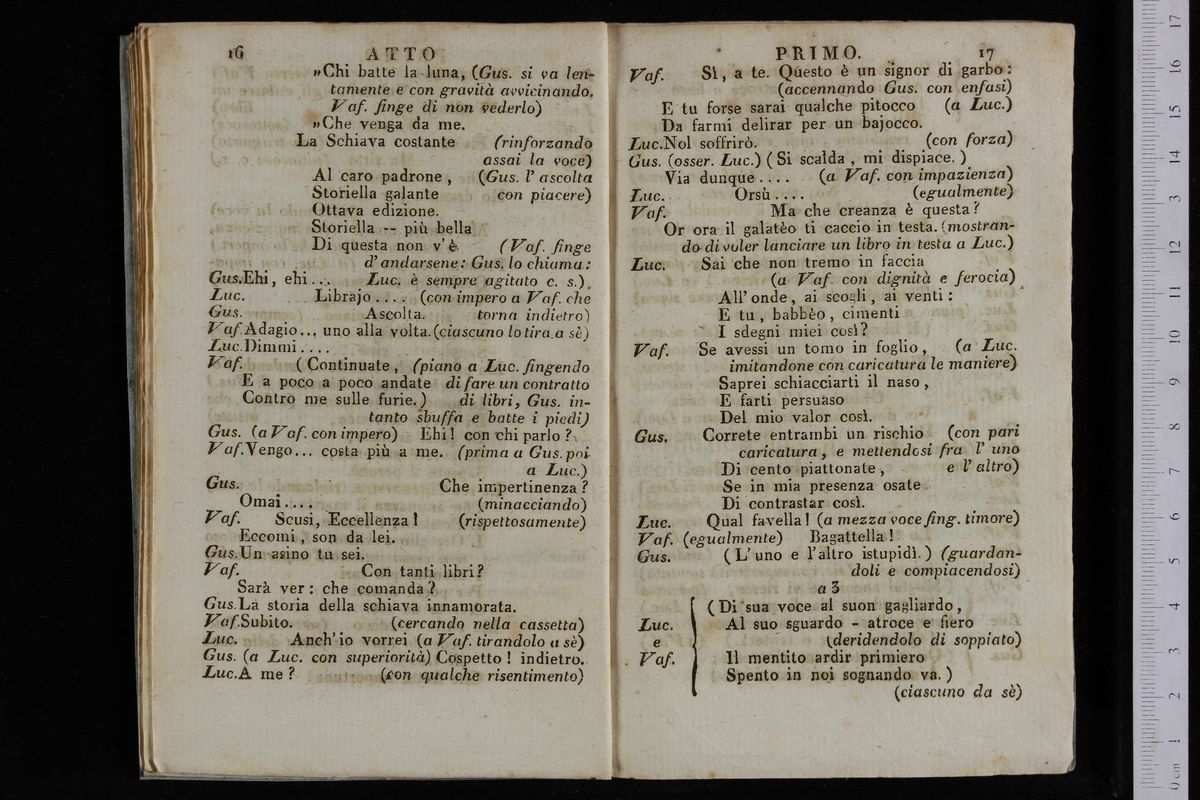 16 ATTO
"Chi batte la luna, (Gus. si va len-
tamente e con gravità avvicinando.
Vaf. finge di non vederlo)
"Che venga da me.
La Schiava costante (rinforzando
assai la voce)
Al caro padrone, (Gus. l' ascolta
Storiella galante con piacere)
Ottava edizione.
Storiella -- più bella
Di questa non v'è (Vaf. finge
d' andarsene: Gus. lo chiama:
Gus. Ehi, ehi... Luc. è sempre agitato c. s.)
Luc. Librajo.... (con impero a Vaf. che
Gus. Ascolta. torna indietro)
Vaf. Adagio... uno alla volta. (ciascuno lo tira a sè)
Luc. Dimmi....
Vaf. (Continuate, (piano a Luc. fingendo
E a poco a poco andate di fare un contratto
Contro me sulle furie.) di libri, Gus. in-
tanto sbuffa e batte i piedi)
Gus. (a Vaf. con impero) Ehi! con chi parlo?
Vaf. Vengo... costa più a me. (prima a Gus. poi
a Luc.)
Gus. Che impertinenza?
Omai.... (minacciando)
Vaf. Scusi, Eccellenza! (rispettosamente)
Eccomi, son da lei.
Gus. Un asino tu sei.
Vaf. Con tanti libri?
Sarà ver: che comanda?
Gus. La storia della schiava innamorata.
Vaf. Subito. (cercando nella cassetta)
Luc. Anch' io vorrei (a Vaf. tirandolo a sè)
Gus. (a Luc. con superiorità) Cospetto! indietro.
Luc. A me? (con qualche risentimento)
PRIMO. 17
Vaf. Sì, a te. Questo è un signor di garbo:
(accennando Gus. con enfasi)
E tu forse sarai qualche pitocco (a Luc.)
Da farmi delirar per un bajocco.
Luc. Nol soffrirò. (con forza)
Gus. (osser. Luc.) (Si scalda, mi dispiace.)
Via dunque.... (a Vaf. con impazienza)
Luc. Orsù.... (egualmente)
Vaf. Ma che creanza è questa?
Or ora il galatèo ti caccio in testa. (mostran-
do di voler lanciare un libro in testa a Luc.)
Luc. Sai che non tremo in faccia
(a Vaf. con dignità e ferocia)
All' onde, ai scogli, ai venti:
E tu, babbèo, cimenti
I sdegni miei così?
Vaf. Se avessi un tomo in foglio, (a Luc.
imitandone con caricatura le maniere)
Saprei schiacciarti il naso,
E farti persuaso
Del mio valor così.
Gus. Correte entrambi un rischio (con pari
caricatura, e mettendosi fra l' uno
Di cento piattonate, e l' altro)
Se in mia presenza osate
Di contrastar così.
Luc. Qual favella! (a mezza voce fing. timore)
Vaf. (egualmente) Bagattella!
Gus. (L' uno e l'altro istupidì.) (guardan-
doli e compiacendosi)
a 3
(Di sua voce al suon gagliardo,
Luc. Al suo sguardo - atroce e fiero
e (deridendolo di soppiato)
Vaf. Il mentito ardir primiero
Spento in noi sognando va.)
(ciascuno da sè)
0 cm 1 2 3 4 5 6 7 8 9 10 11 12 13 14 15 16 17